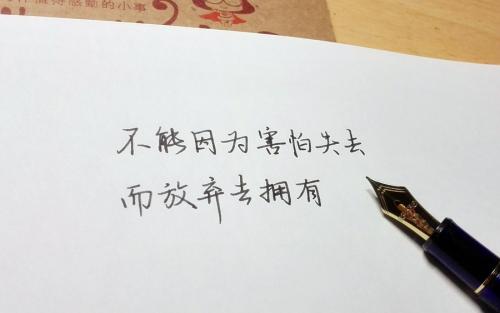 感動的小事
不能因为害怕失去
而放弃去拥有